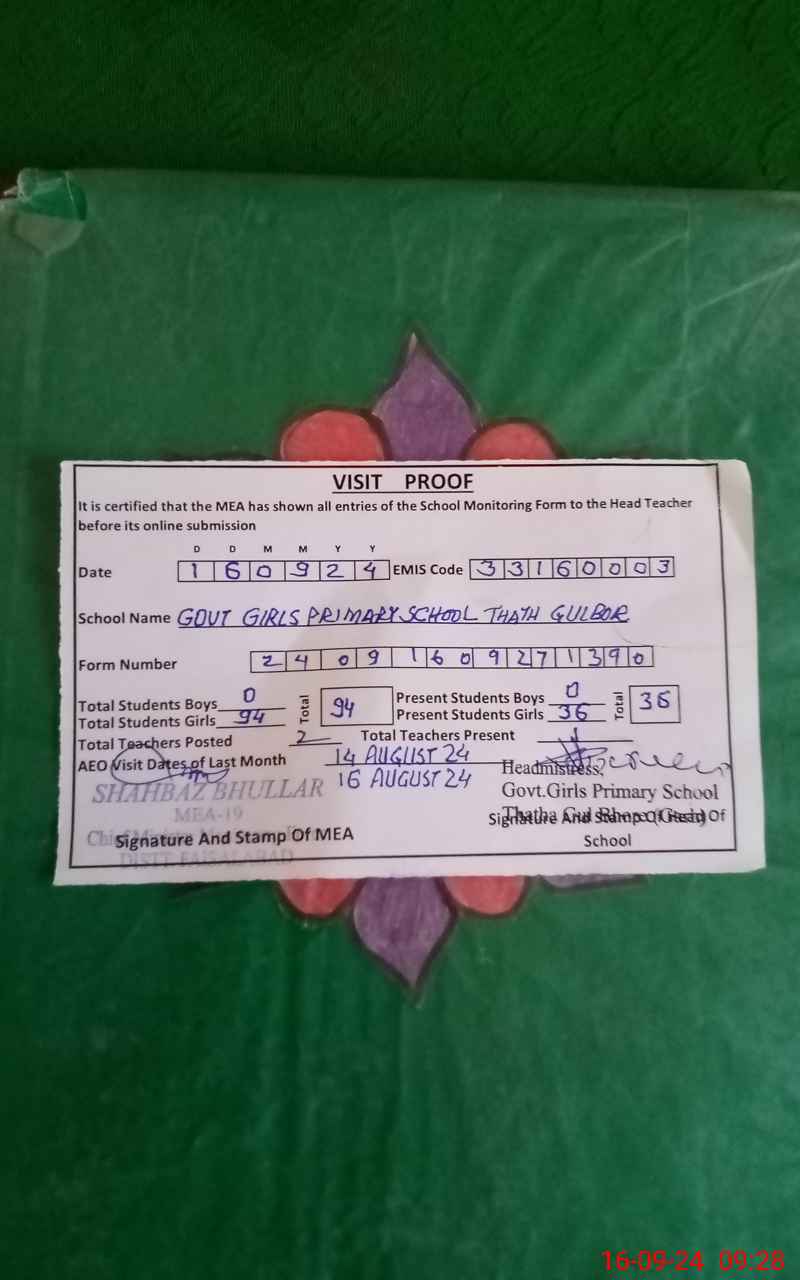 VISIT PROOF
It is certified that the MEA has shown all entries of the School Monitoring Form to the Head Teacher
before its online submission
D D M M Y Y
Date 1 6 0 9 2 4 EMIS Code 3 3 1 6 0 0 0 3
School Name GOVT GIRLS PRIMARY SCHOOL THATH GULBOR
Form Number 2 4 0 9 1 6 0 9 2 7 1 3 9 0
Total Students Boys 0 Total 94 Present Students Boys 0 Total 36
Total Students Girls 94 Present Students Girls 36
Total Teachers Posted 2 Total Teachers Present 1
AEO Visit Dates of Last Month 14 AUGUST 24
16 AUGUST 24
Headmistress,
SHAHBAZ BHULLAR
Govt.Girls Primary School
MEA-19
Signature And Stamp Of MEA
Signature And Stamp Of Head Of
School
DISTT FAISALABAD
16-09-24 09:28